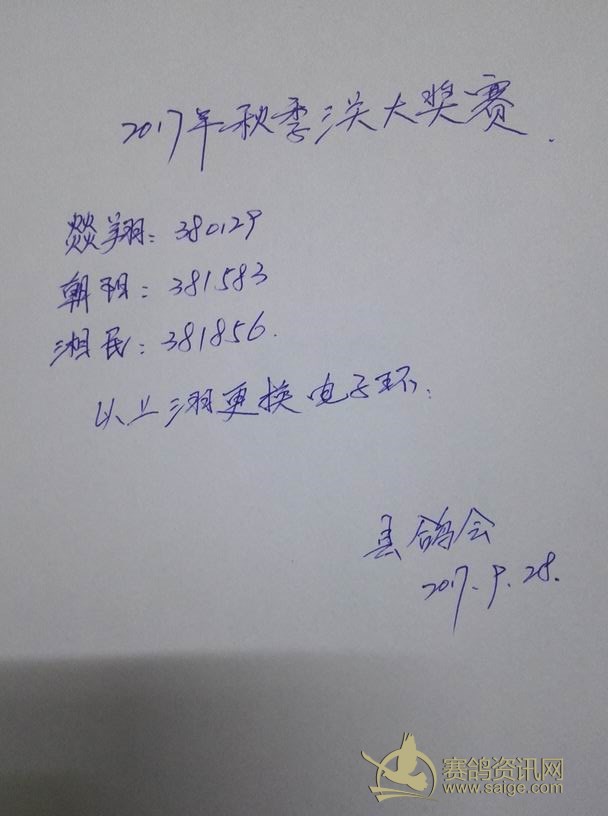 2017年秋季三关大奖赛.
燚翔: 380129
朝阳: 381583
湘民: 381856.
以上三羽更换电子环.
县鸽会
2017.9.28.
赛鸽资讯网
www.saige.com